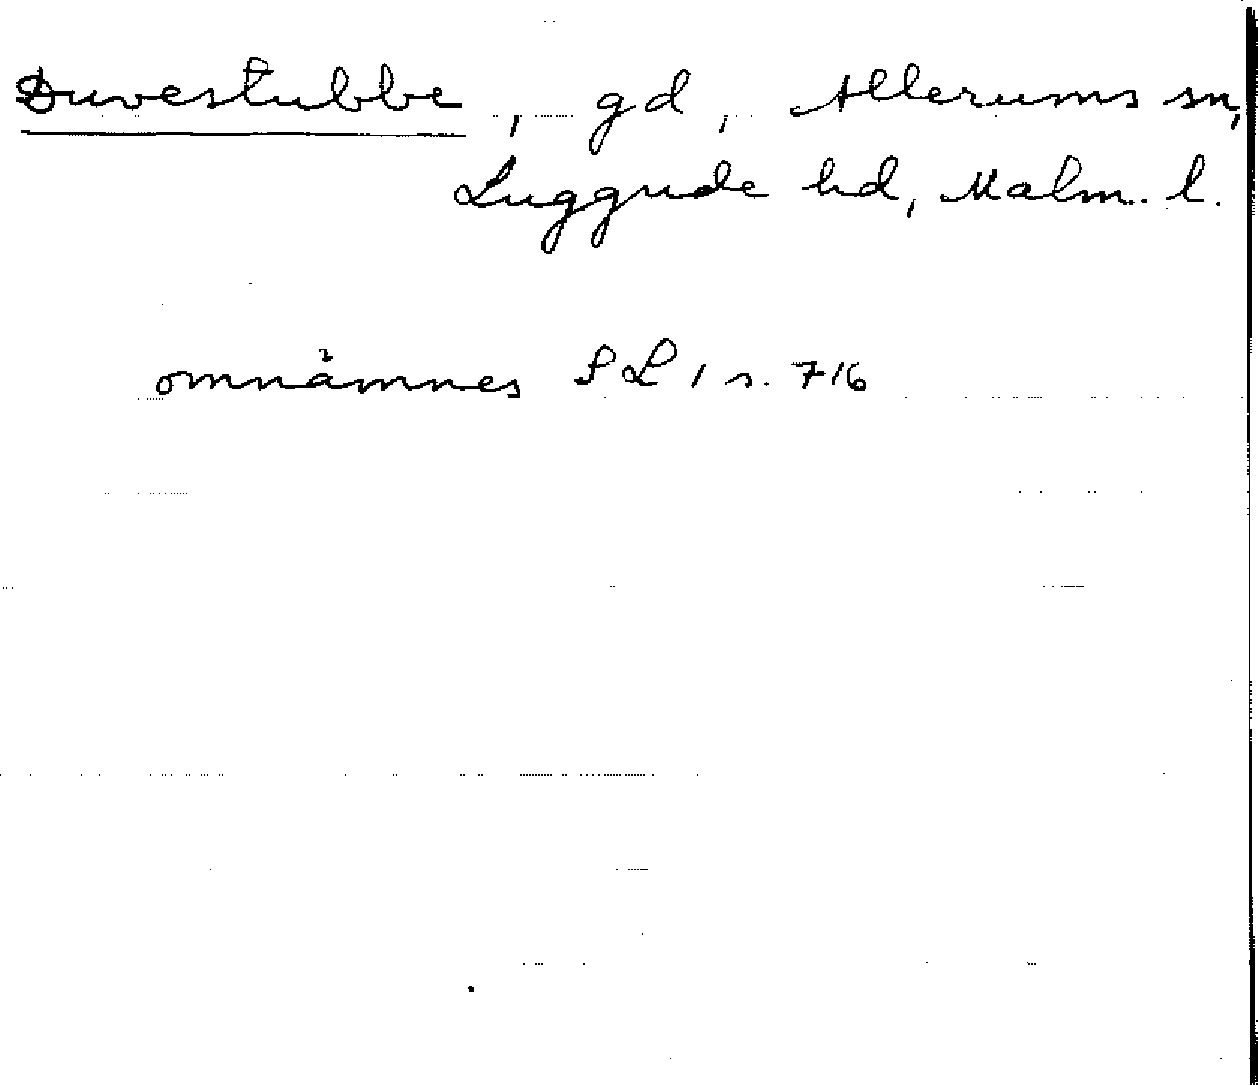 Duvestubbe, gd, Allerums sn,
Luggude hd, Malm. l.
omnämnes SL 1 s. 716